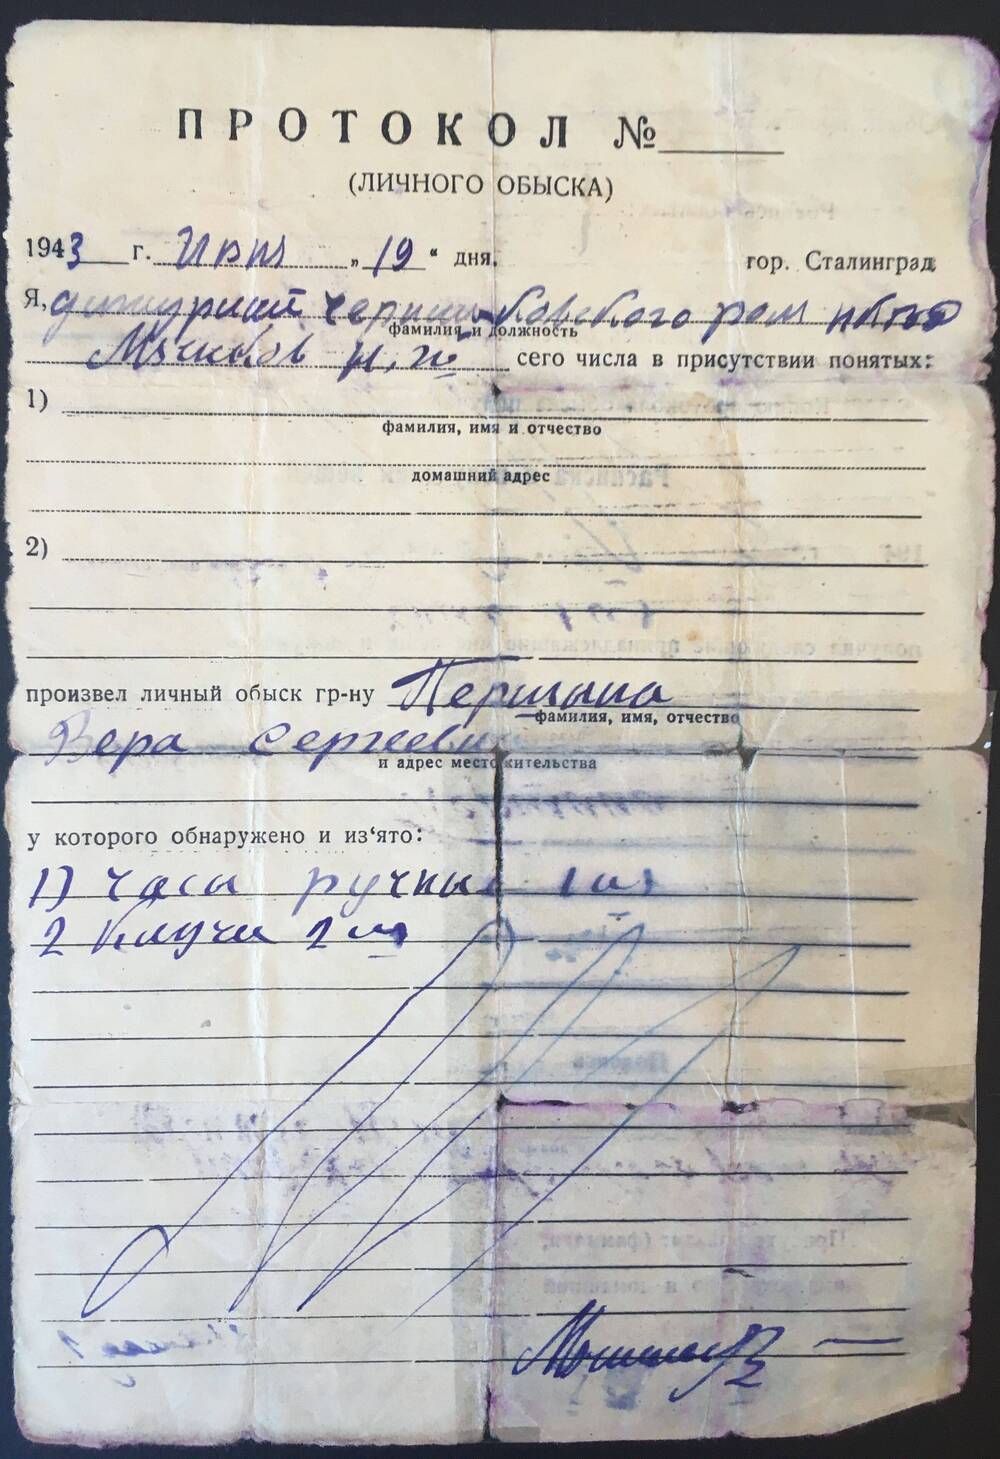 ПРОТОКОЛ № 
(ЛИЧНОГО ОБЫСКА)
1943 г. Июн „19“ дня. гор. Сталинград
Я, дижурний
фамилия и должность
сего числа в присутствии понятых:
1)
фамилия, имя и отчество
домашний адрес
2)
произвел личный обыск гр-ну Першына
фамилия, имя, отчество
Вера Сергеевн
и адрес местожительства
у которого обнаружено и из‘ято:
1) Часы ручные 1 шт
2 Ключи 2 шт